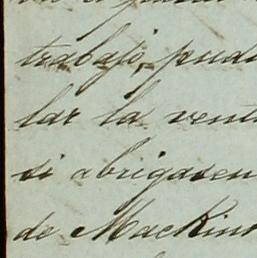 trabajo, pud
lar la vent
si abrigasen
de MacKinn